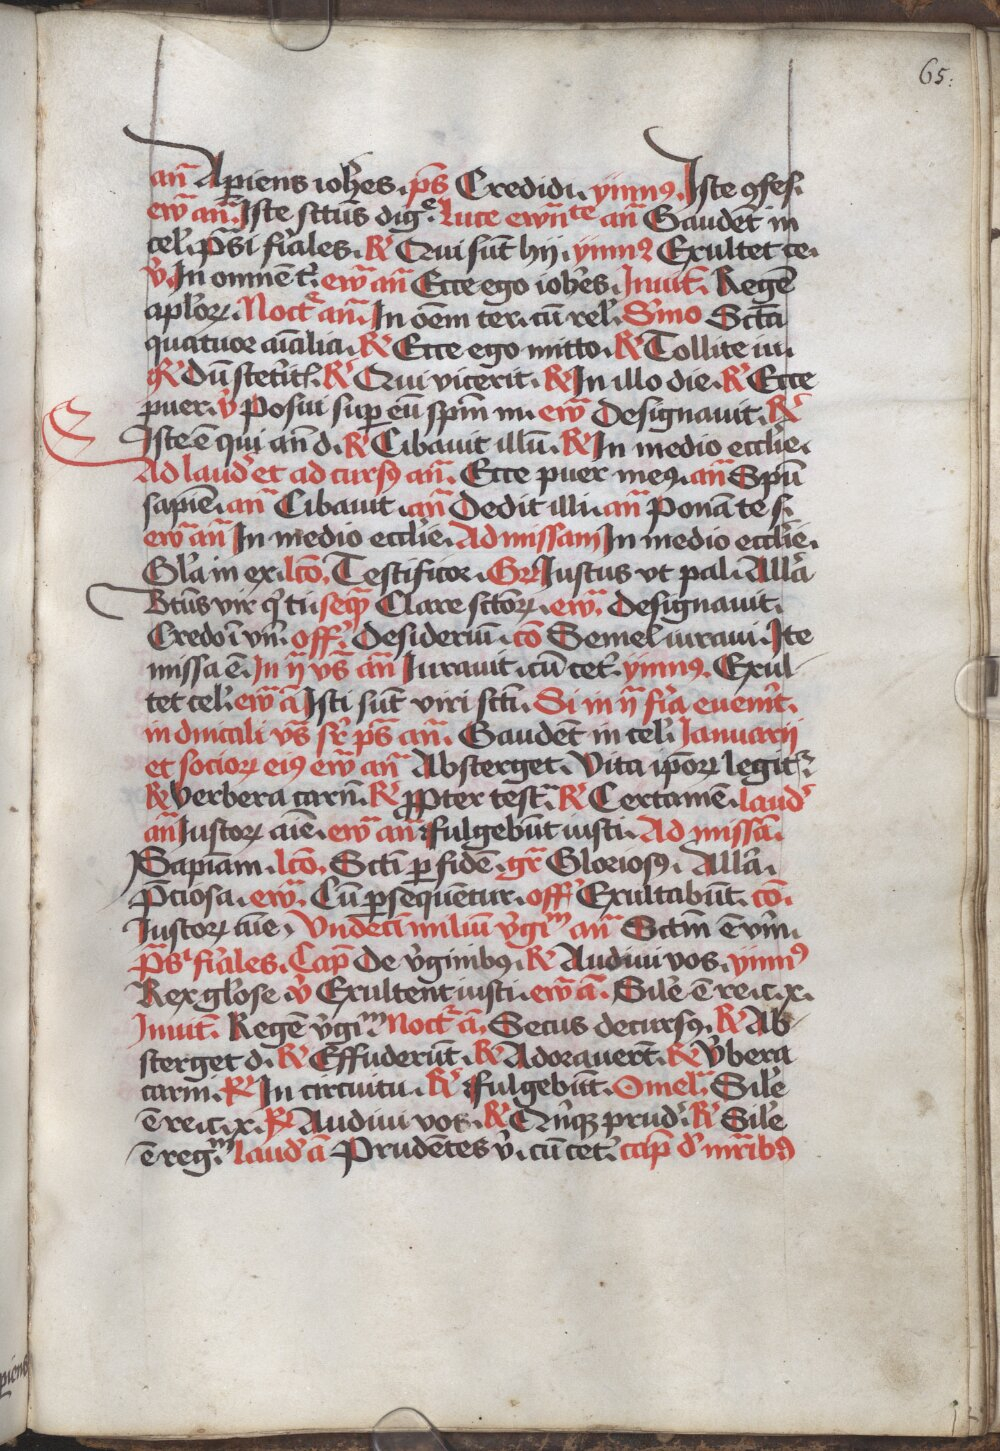 65.
an̄ Apiens ioh̄es. ps̄ Credidi. ymnꝯ. Iste ꝯfes.
ew̄ an̄. Iste sct̄us dig̾. Luce ewn̄te an̄ Gaudet in
cel. ps̄i fr̄ales. R̾ Qui sūt hij. ymnꝯ Exultet ce.
v̾. In omnē t̾. ew̄ an̄ Ecce ego ioh̄es. Inuit̾. Regē
apl̄oꝝ. Noct̾ an̄. In ōem ter. cū rel. S̾mo Sct̄a
quatuor aīalia. R̾ Ecce ego mitto. R̾ Tollite iu.
R̾ Dū stet̾it. R̾ Qui vicerit. R̾ In illo die. R̾ Ecce
puer. v̾ Posui sup eū spm̄ m. ew̄ Designauit. R̾
Iste ē qui an̄ d. R̾ Cibauit illū. R̾ In medio eccl̄ie.
Ad laud̾ et ad cursꝯ an̄. Ecce puer meꝯ. an̄ Spū
sapiē. an̄ Cibauit. an̄ Dedit illi. an̄ Ponā te s.
ew̄ an̄ In medio eccl̄ie. Ad missam In medio eccl̄ie.
Gl̄a in ex. lc̄o. Testificor. Gr̾ Iustus vt pal. All̄a
Bt̄us vir q̾ ti. seq̄ Clare sct̄oꝝ. ew̄. Designauit.
Credo ī vn̄. off̾. Desideriū. cō Semel iuraui. Ite
missa ē. In ij vs̄ an̄ Iurauit. cū cet̾. ymnꝯ. Exul-
tet cel. ew̄ ā Isti sūt viri sct̄i. Si in ij fr̄a euen̾it.
in dnicali vs̄ sr̾ ps̄ an̄. Gaudēt in cel. Ianuarij
et socioꝝ eiꝯ ew̄ an̄ Absterget. Vita ip̄oꝝ legit̾.
R̾ Verbera carn̄. R̾ Ꝓpter test̾. R̾ Certamē. laud̾
an̄ Iustoꝝ aīe. ew̄ an̄. Fulgebūt iusti. Ad missā.
Sapiām. lc̄o. Sct̄i ꝑ fidē. gr̾ Gloriosꝯ. All̄a.
P̄ciosa. ew̄. Cū ꝑsequentur. off̾ Exultabūt. cō.
Iustoꝝ aīe. Vndeci miliū v̾gi̾m an̄ Sct̄m ē v̾m.
Ps̄i fr̄ales. Cap̄ De v̾ginibꝯ. R̾ Audiui vos. ymnꝯ
Rex gl̄ose v̾ Exultent iusti. ew̄ ā. Sil̄e ē re.c.x.
Inuit̾. Regē v̾gi̾m Noct̾ ā. Secus decursꝯ. R̾ Ab-
sterget d. R̾ Effuderūt. R̾ Adorauerūt. R̾ V̾bera
carn̄. R̾ In circuitu. R̾ Fulgebūt. Omel̾. Sil̄e
ē re.c.x. R̾ Audiui vos. R̾ Qn̄qꝫ prud̾. R̾ Sil̄e
ē reg̾m laud̾ ā Prudētes v̾. cū cet̾. cap̄ d̾ mr̄ibꝯ